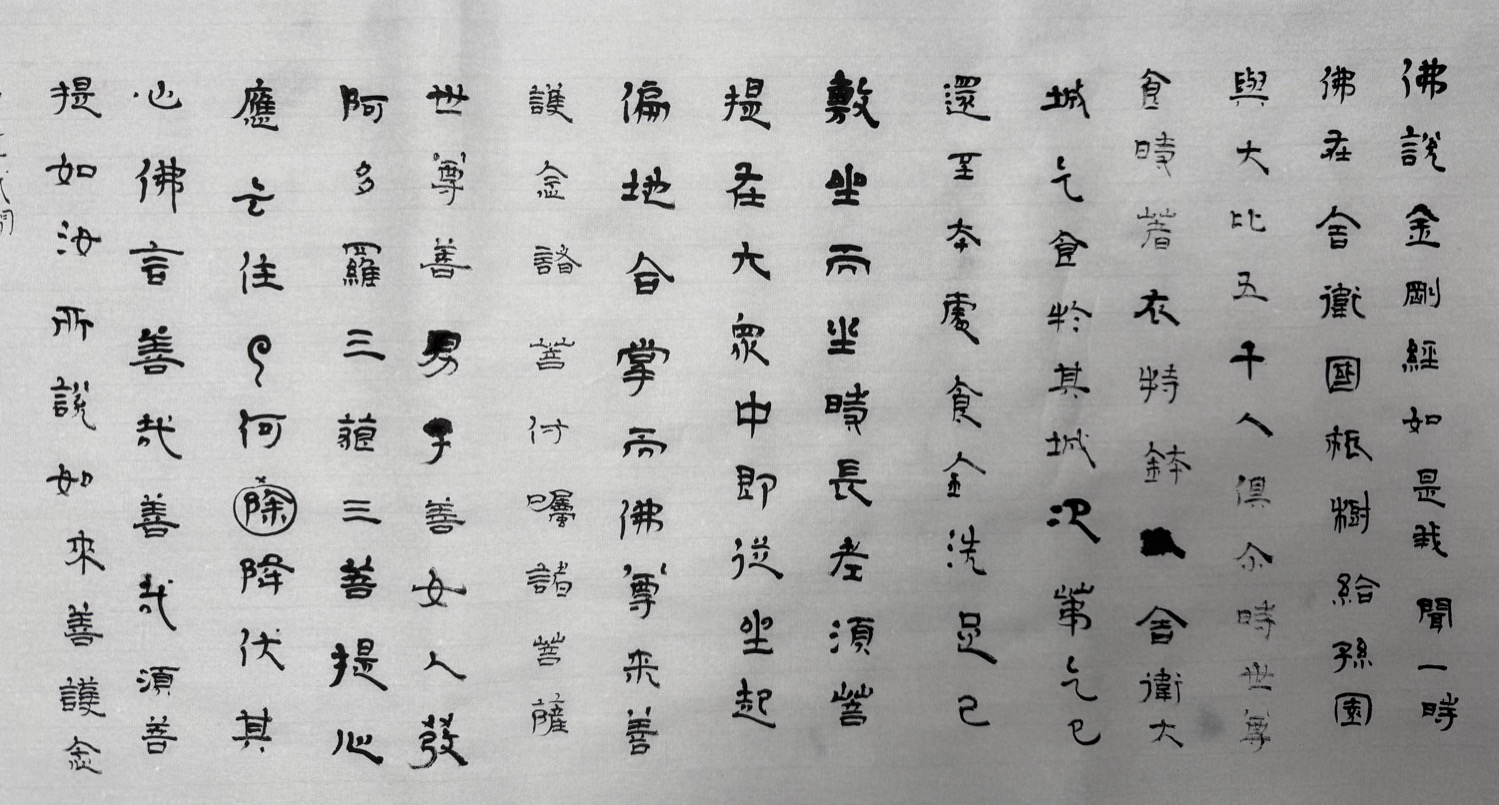 佛說金剛經如是我聞一時
佛在舍衛國祇樹給孫園
與大比五千人俱尒時世尊
食時著衣特鉢舍衛大
城乞食於其城次第乞已
還至本處食金洗足已
敷坐而坐時長老須菩
提在大衆中即從坐起
偏地合掌而佛尊来善
護念諸菩付囑諸菩薩
世尊善男子善女人發
阿多羅三藐三菩提心
應云住何除降伏其
心佛言善哉善哉須菩
提如汝所說如來善護念